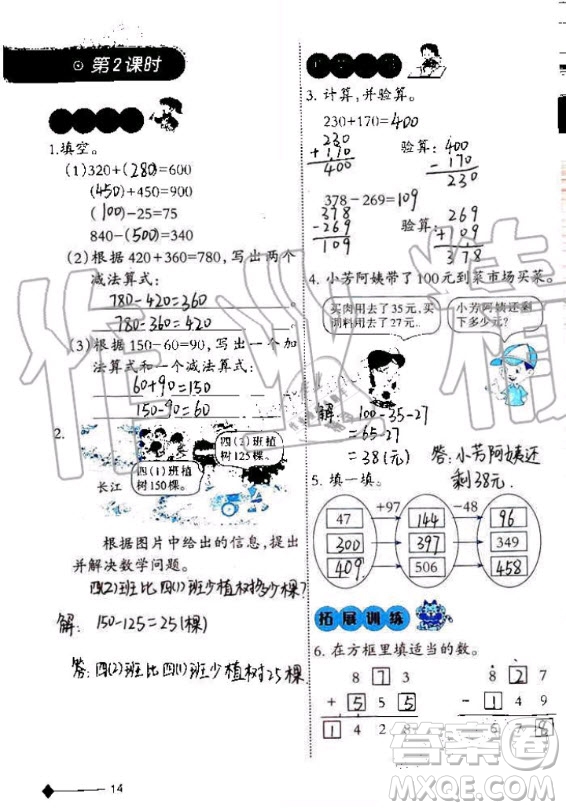 ⊙ 第2课时
1.填空。
(1)320+(280)=600
(450)+450=900
(100)-25=75
840-(500)=340
(2)根据 420+360=780,写出两个
减法算式:
780-420=360
780-360=420
(3)根据 150-60=90,写出一个加
法算式和一个减法算式:
60+90=150
150-90=60
2.
四(2)班植
树125棵。
四(1)班植
树150棵。
长江
根据图片中给出的信息,提出
并解决数学问题。
四(2)班比四(1)班少植树多少棵?
解: 150-125=25(棵)
答:四(2)班比四(1)班少植树25棵
14
3. 计算,并验算。
230+170=400
230
+170
400
验算:
400
-170
230
378-269=109
378
-269
109
验算:
269
+109
378
4. 小芳阿姨带了100元到菜市场买菜。
买肉用去了35元,买
调料用去了27元。
小芳阿姨还剩
下多少元?
解: 100-35-27
=65-27
=38(元)
答:小芳阿姨还
剩38元.
5. 填一填。
+97 -48
47 144 96
300 397 349
409 506 458
拓展训练
6. 在方框里填适当的数。
8 7 3
+ 5 5 5
1 4 2 8
8 2 7
- 1 4 9
6 7 8
作业精
答案圈
MXQE.COM